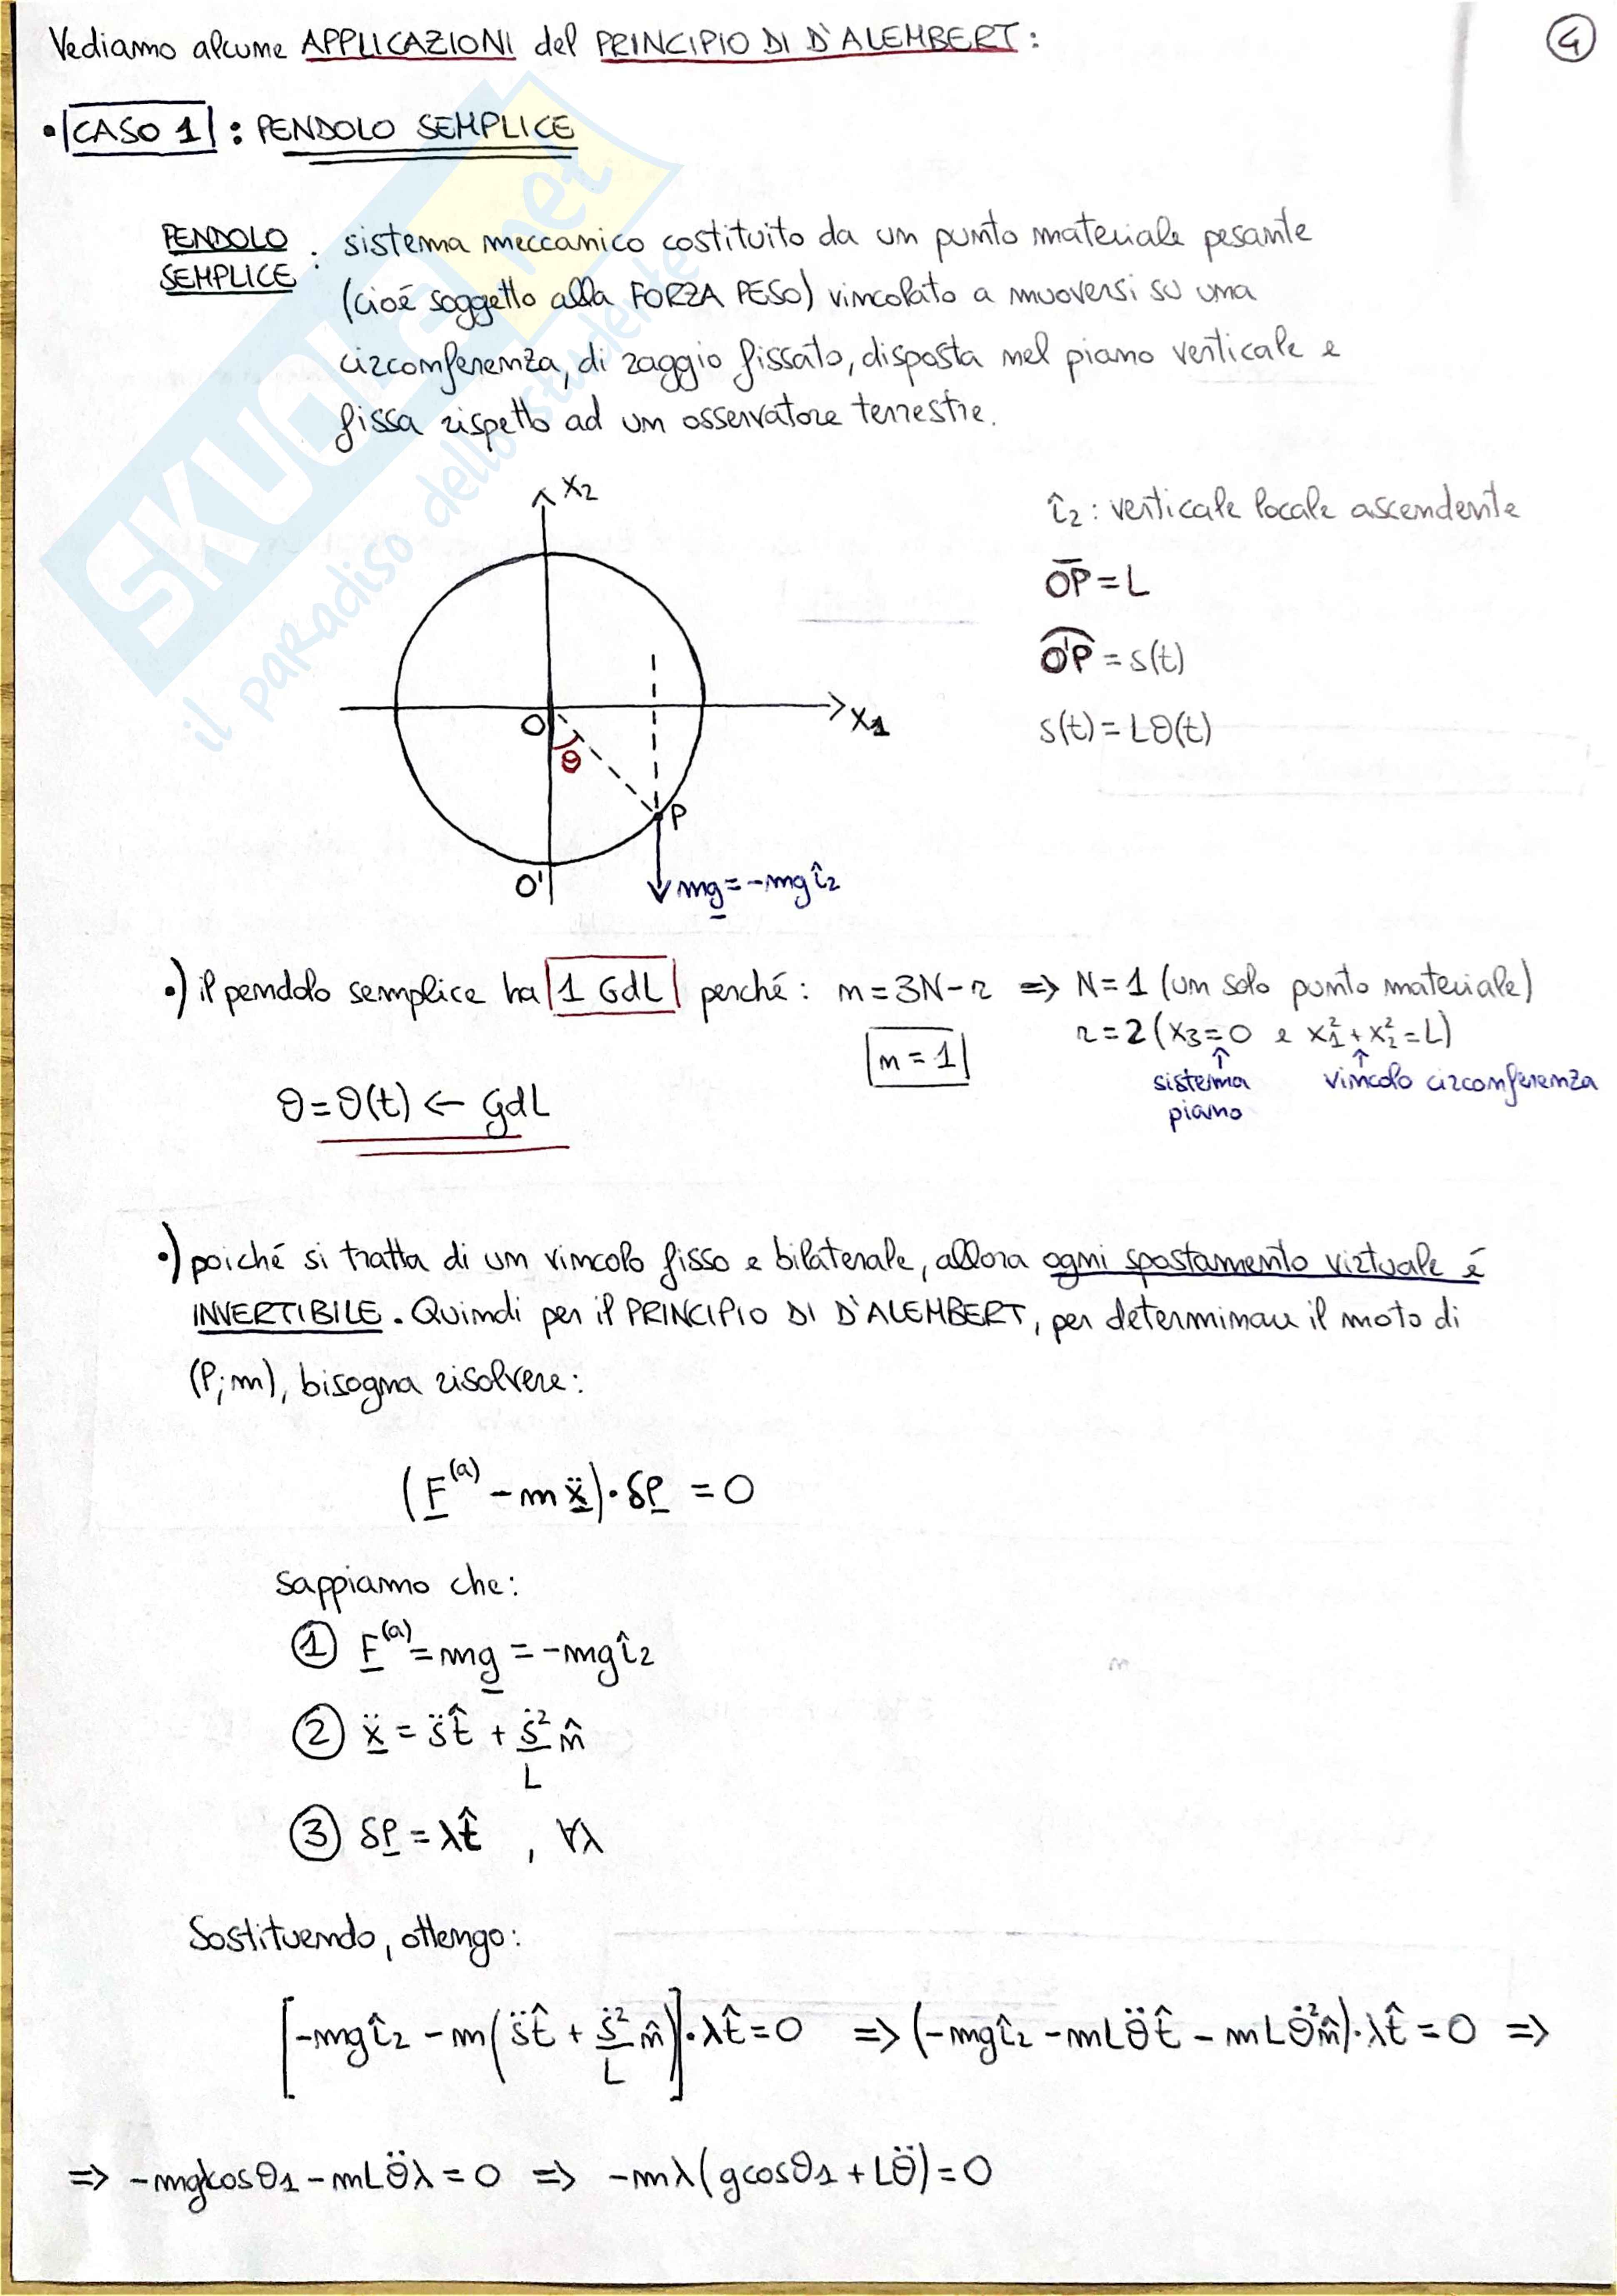 Vediamo alcune APPLICAZIONI del PRINCIPIO DI D'ALEMBERT:
4
• CASO 1 : PENDOLO SEMPLICE
PENDOLO SEMPLICE : sistema meccanico costituito da un punto materiale pesante
(cioé soggetto alla FORZA PESO) vincolato a muoversi su una
circonferenza, di raggio fissato, disposta nel piano verticale e
fissa rispetto ad un osservatore terrestre.
SKUOLA.net
il paradiso dello studente
x₂
î₂ : verticale locale ascendente
OP̅ = L
O'P̑ = s(t)
s(t) = Lθ(t)
O
x₁
θ
P
O'
mg̲ = -mgî₂
•) il pendolo semplice ha 1 GdL perché: n = 3N - r ⇒ N = 1 (un solo punto materiale)
n = 1
r = 2 (x₃ = 0 e x₁² + x₂² = L)
↑ sistema piano
↑ vincolo circonferenza
θ = θ(t) ← GdL
•) poiché si tratta di un vincolo fisso e bilaterale, allora ogni spostamento virtuale é
INVERTIBILE. Quindi per il PRINCIPIO DI D'ALEMBERT, per determinare il moto di
(P; m), bisogna risolvere:
(F̲⁽ᵃ⁾ - mẍ̲)·δP̲ = 0
sappiamo che:
① F̲⁽ᵃ⁾ = mg̲ = -mgî₂
② ẍ̲ = s̈t̂ + ṡ²/L n̂
③ δP̲ = λt̂ , ∀λ
Sostituendo, ottengo:
[-mgî₂ - m(s̈t̂ + ṡ²/L n̂)]·λt̂ = 0 ⇒ (-mgî₂ - mLθ̈t̂ - mLθ̈²n̂)·λt̂ = 0 ⇒
⇒ -mgλcosθ₁ - mLθ̈λ = 0 ⇒ -mλ(gcosθ₁ + Lθ̈) = 0